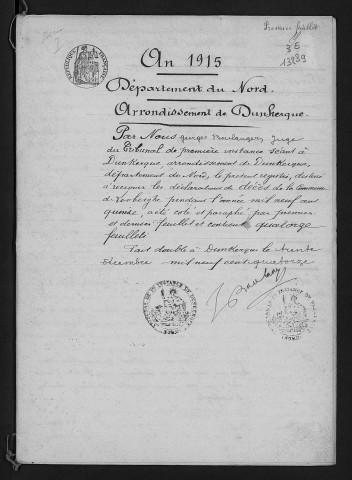 Premier feuillet
3E
13839
An 1915
Département du Nord.
Arrondissement de Dunkerque.
Par Nous Georges Boulanger, Juge
du Tribunal de première instance séant à
Dunkerque, arrondissement de Dunkerque,
département du Nord, le présent registre, destiné
à recevoir les déclarations de décès de la Commune
d' pendant l'année mil neuf cent
quinze, a été coté et paraphé par premier
et dernier feuillet et contenant quatorze
feuillets
Fait double à Dunkerque le trente
décembre mil neuf cent quatorze